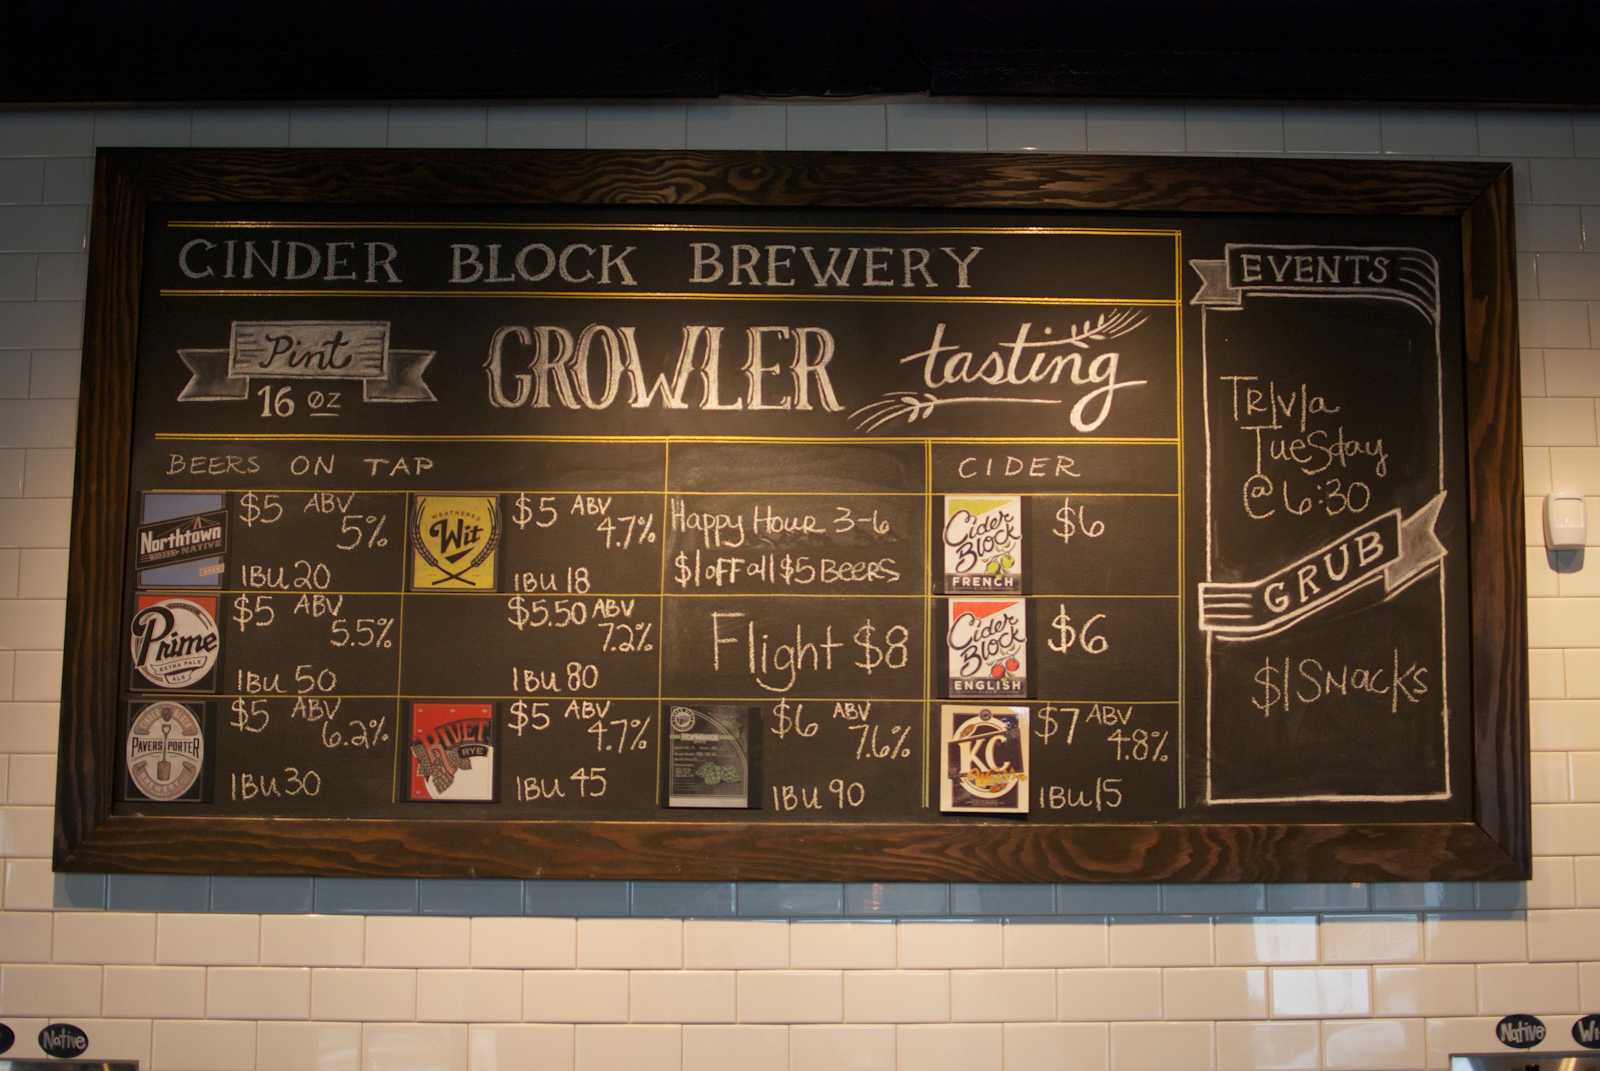 CINDER BLOCK BREWERY
Pint
16 OZ
GROWLER
tasting
BEERS ON TAP
Northtown
NATIVE
$5 ABV
5%
IBU 20
WEATHERED
Wit
$5 ABV
4.7%
IBU 18
Prime
EXTRA PALE
ALE
$5 ABV
5.5%
IBU 50
$5.50 ABV
7.2%
IBU 80
PAVERS PORTER
$5 ABV
6.2%
IBU 30
RIVET
RYE
$5 ABV
4.7%
IBU 45
Happy Hour 3-6
$1 off all $5 BEERS
Flight $8
$6 ABV
7.6%
IBU 90
CIDER
Cider
Block
FRENCH
$6
Cider
Block
ENGLISH
$6
KC
$7 ABV
4.8%
IBU 15
EVENTS
Trivia
TueSday
@ 6:30
GRUB
$1 SNacKs
Native
Native